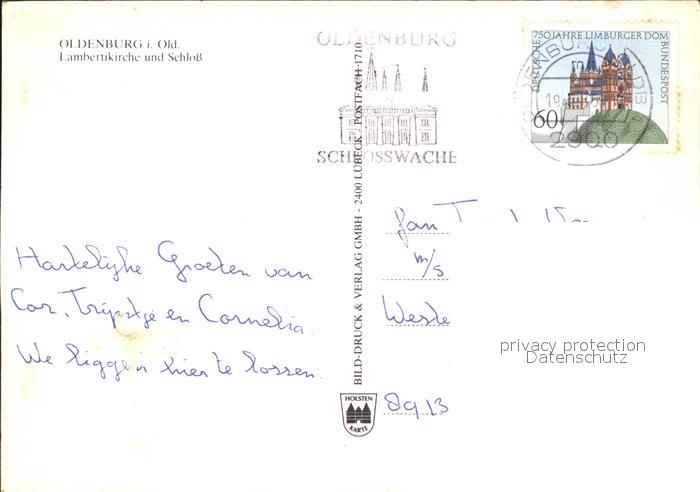 OLDENBURG i. Old.
Lambertikirche und Schloß
OLDENBURG
SCHLOSSWACHE
DEUTSCHE BUNDESPOST
750 JAHRE LIMBURGER DOM
60
2900
BILD-DRUCK & VERLAG GMBH - 2400 LÜBECK - POSTFACH 1710
Hartelijke Groeten van
Cor, Trijntje en Cornelia.
We liggen hier te lossen.
Jan T
m/s
Weste
8913
HOLSTEN-
KARTE
privacy protection
Datenschutz